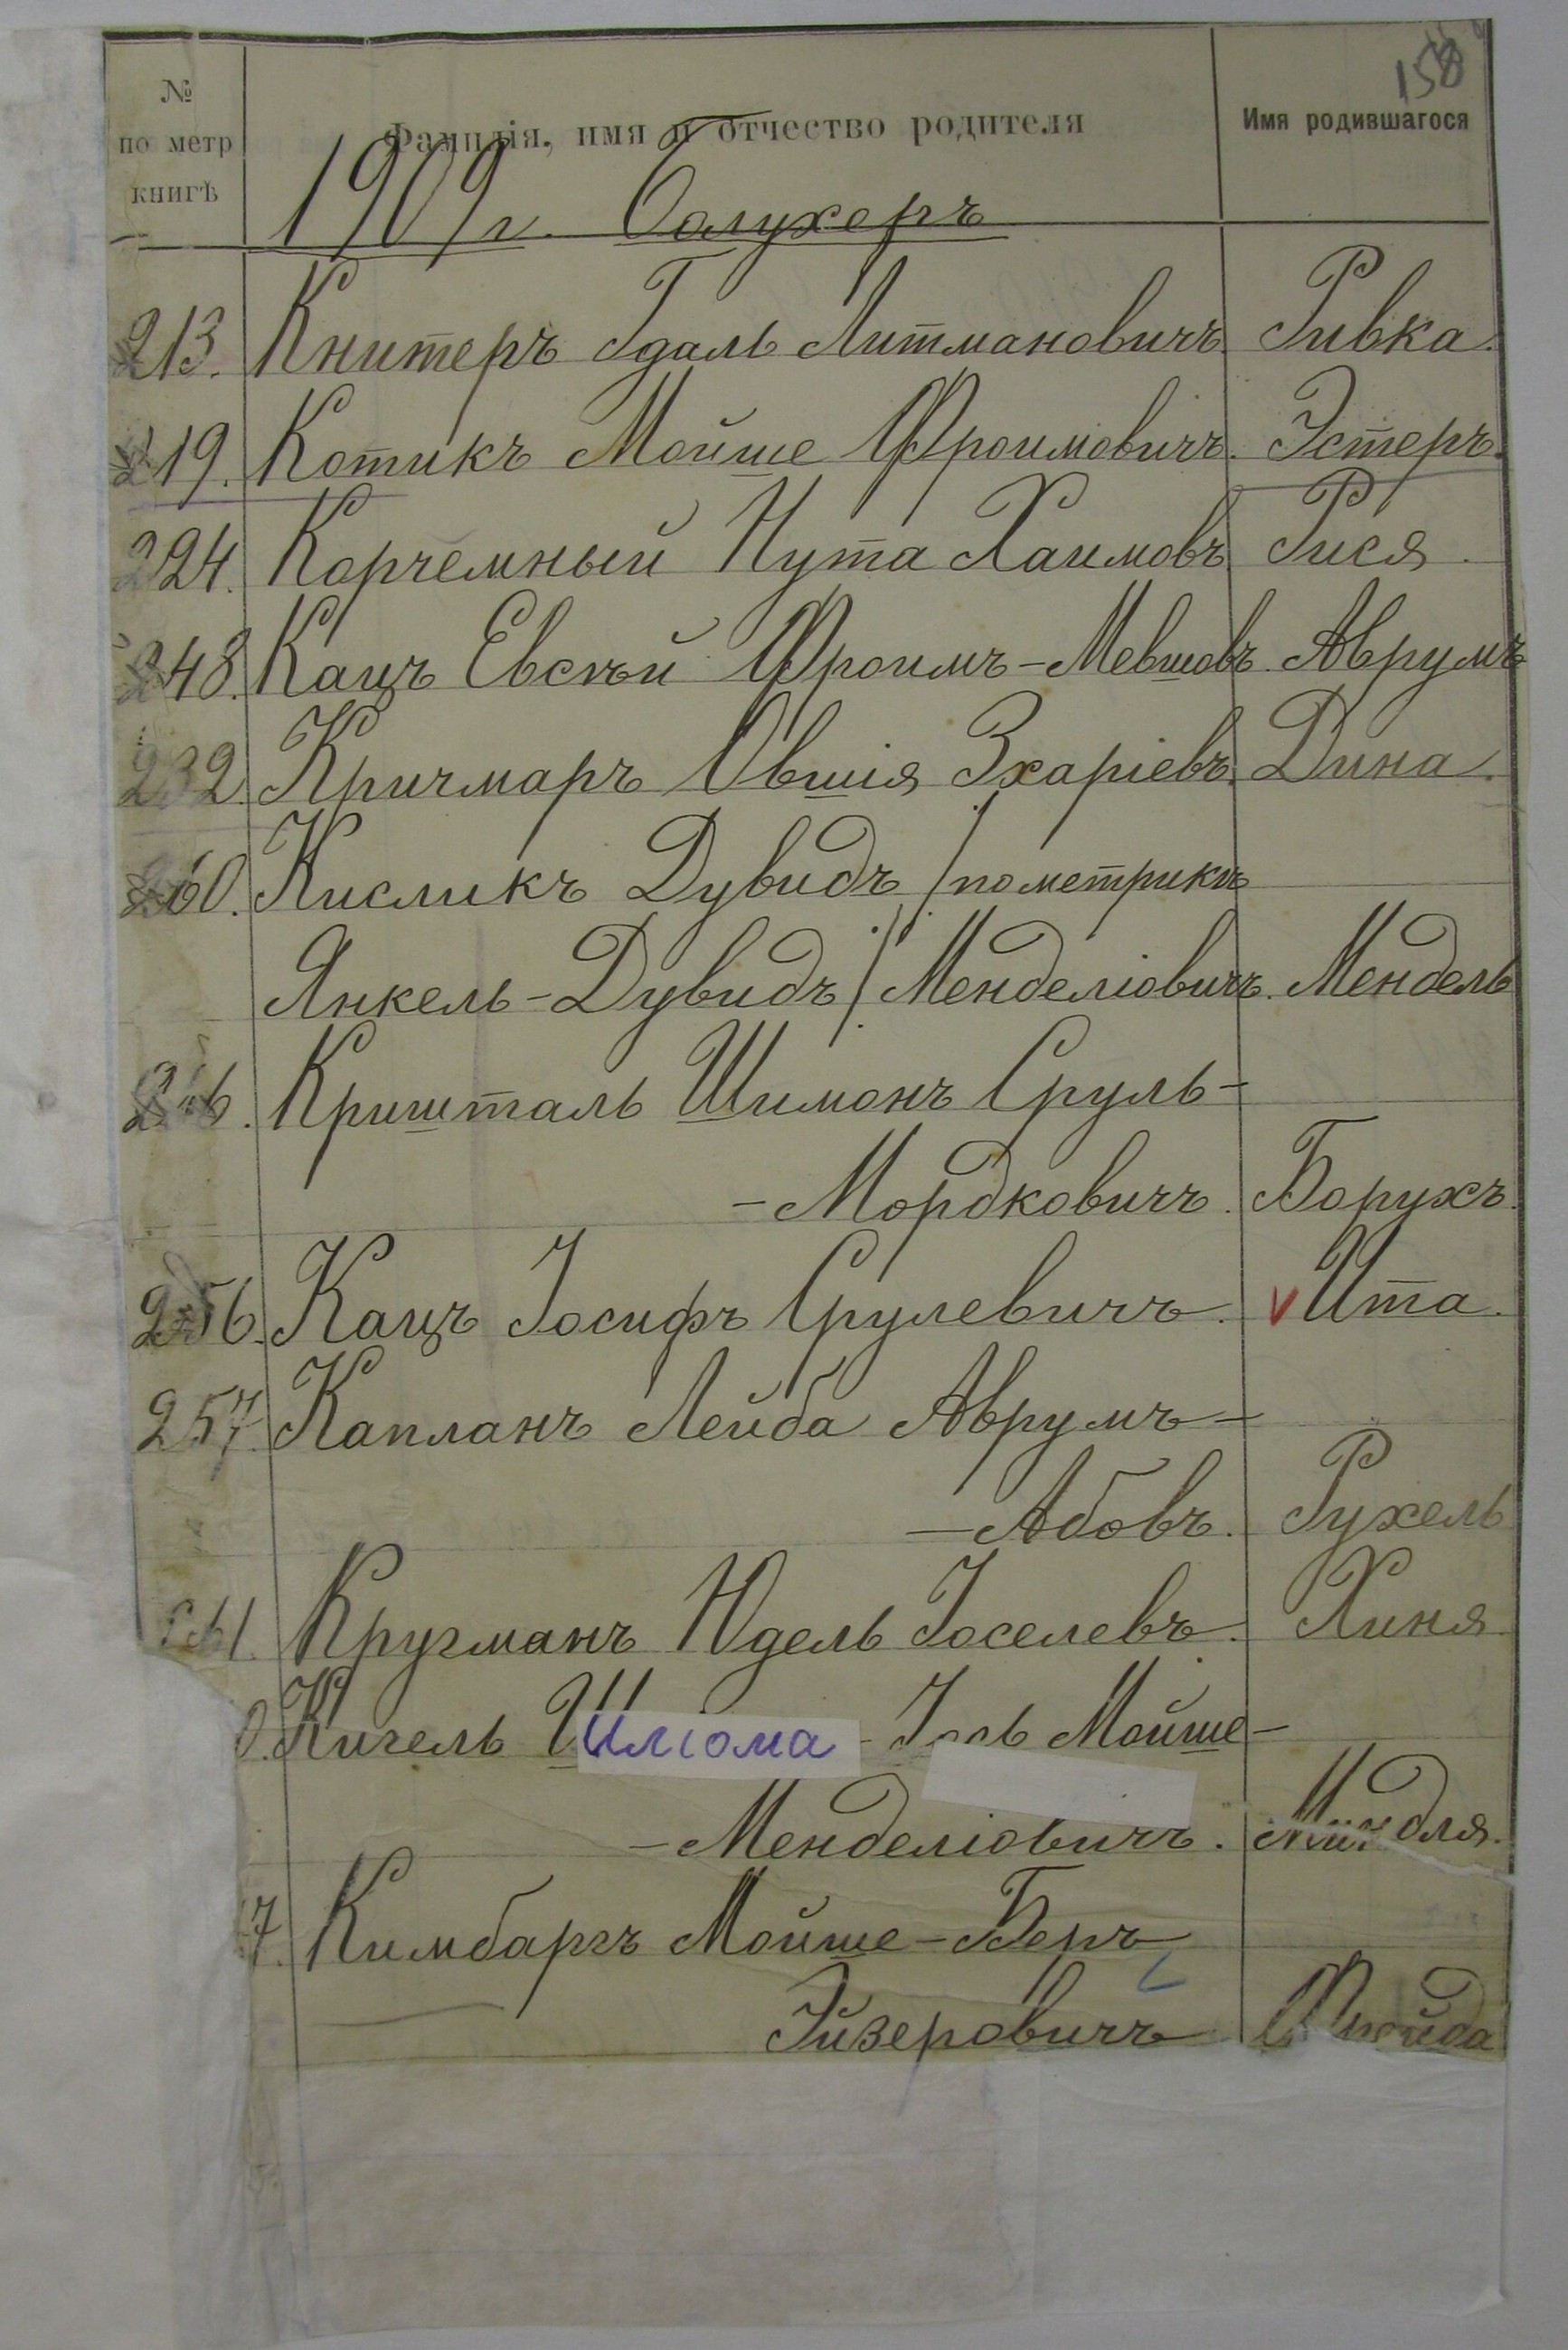 158
№ по метр книгѣ Фамилія, имя и отчество родителя Имя родившагося
1909 г. Болухеръ
213. Книтеръ Гдаль Литмановичъ. Ривка.
219. Котикъ Мойше Фроимовичъ. Эстеръ.
224. Корчемный Нута Хаимовъ Рися.
248. Кацъ Евсѣй Фроимъ-Мевшовъ. Аврумъ
232. Кричмаръ Овшія Зхаріевъ. Дина.
260. Кисликъ Дувидъ /по метрикѣ
Янкель-Дувидъ/ Менделіовичъ. Мендель
Кришталь Шимонъ Сруль-
-Мордковичъ. Борухъ.
256. Кацъ Іосифъ Срулевичъ. v Ита.
257. Капланъ Лейба Аврумъ-
-Абовъ. Рухель
Кругманъ Идель Іоселевъ. Хиня
0. Кигель Шліома - Мойше-
-Менделіовичъ. Миндля.
7. Кимбаргъ Мойше-Беръ
Эйзеровичъ Фрейда